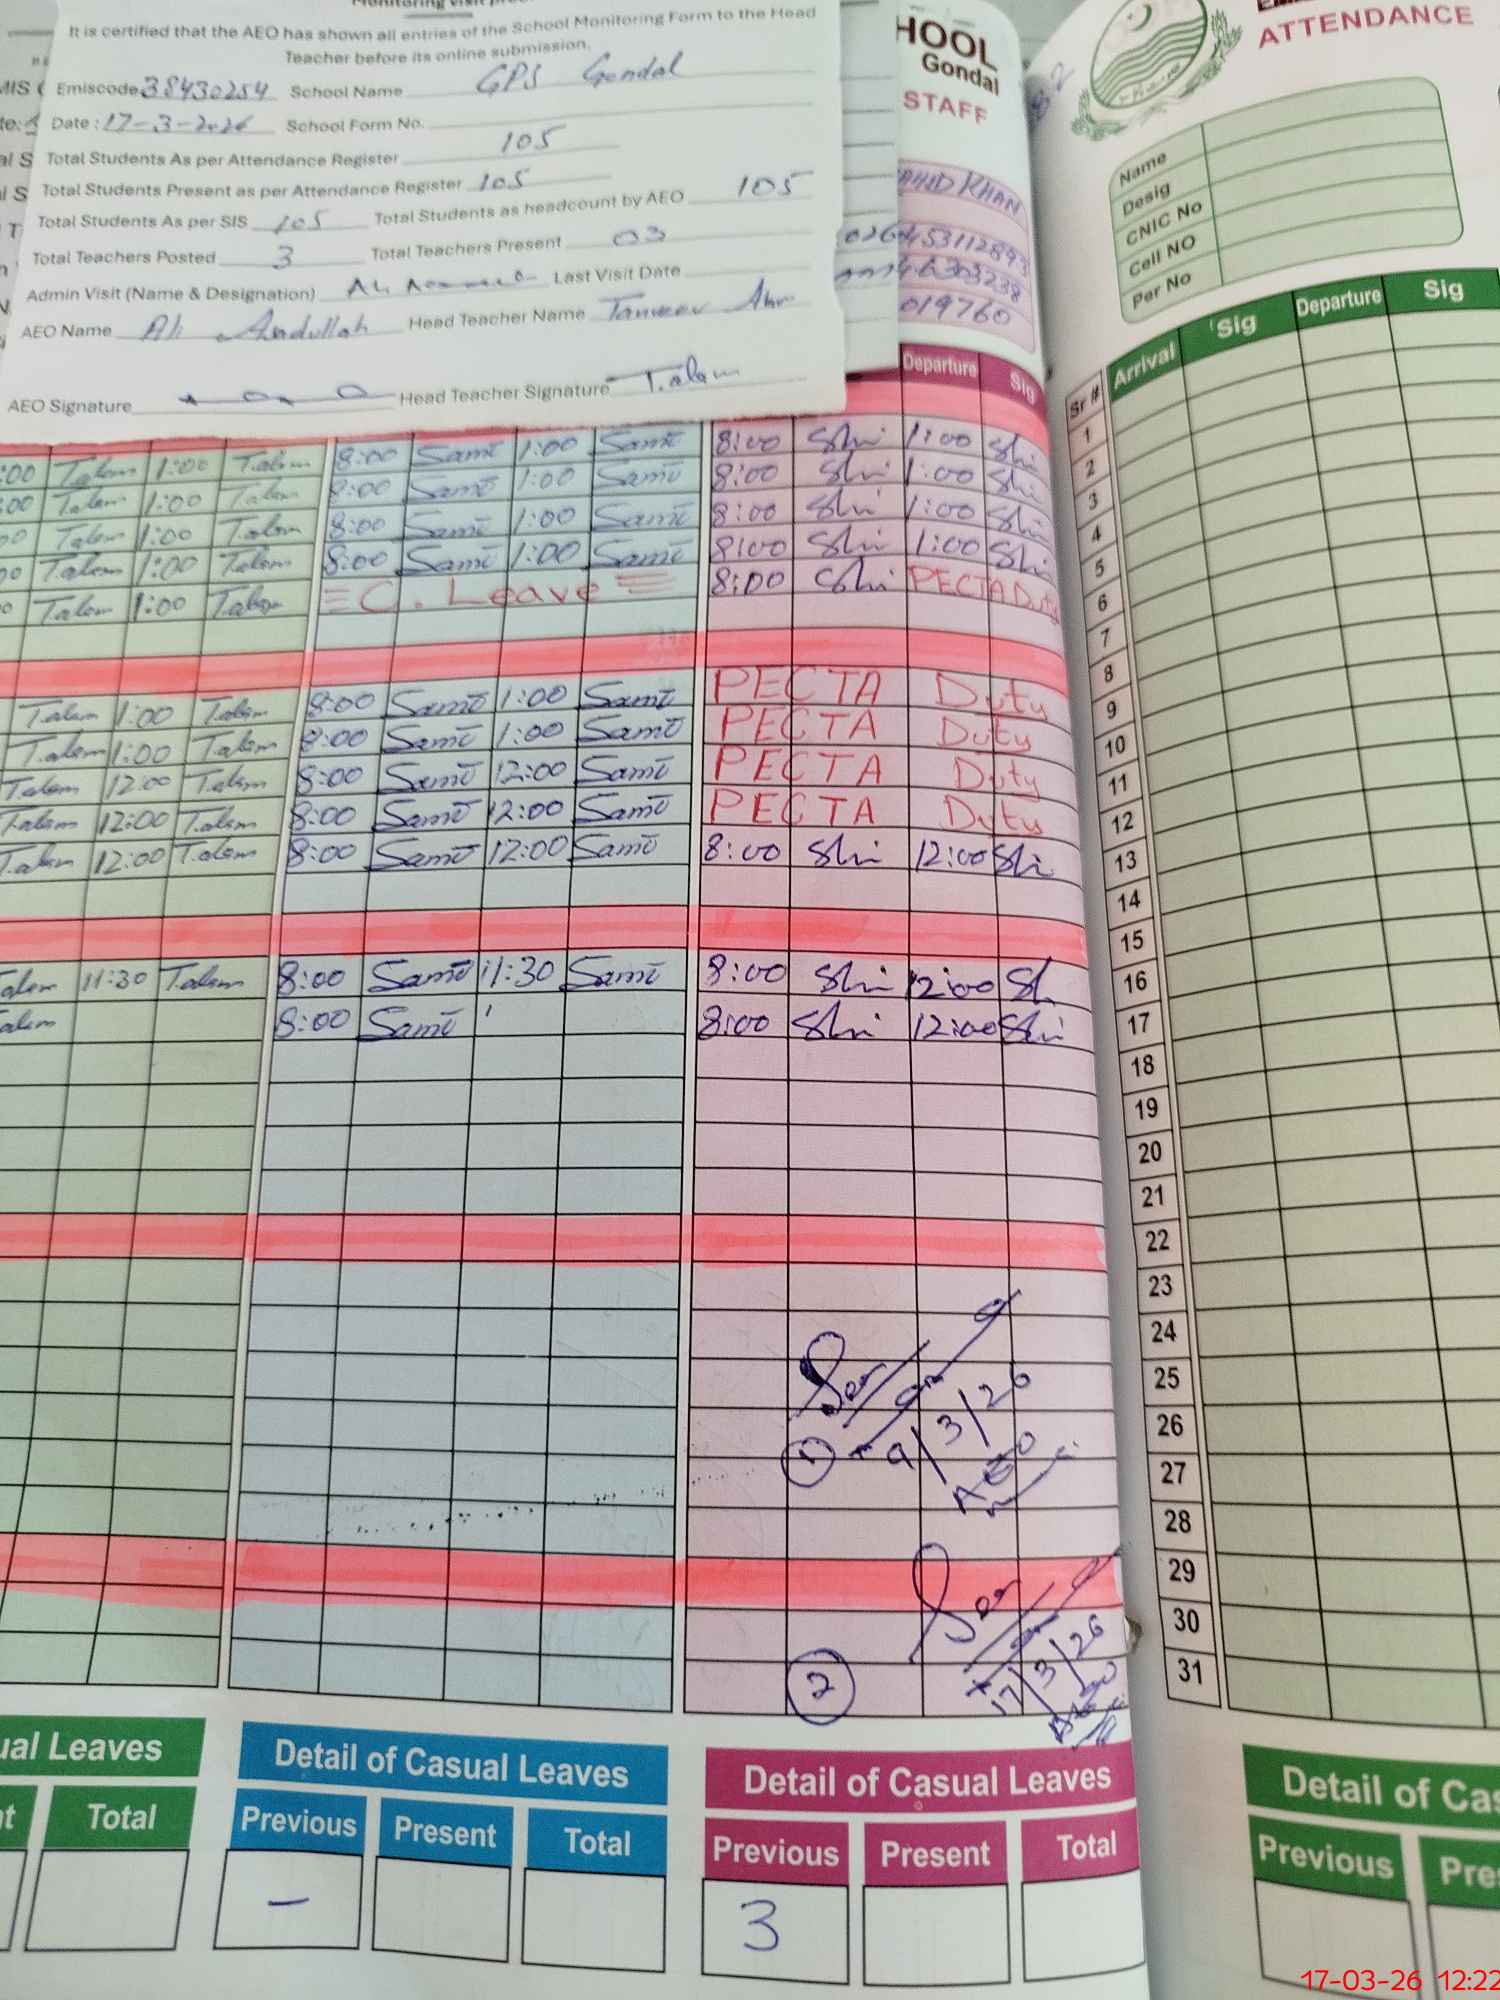 It is certified that the AEO has shown all entries of the School Monitoring Form to the Head
Teacher before its online submission.
Emiscode 38430254 School Name GPS Gondal
Date : 17-3-2026 School Form No.
Total Students As per Attendance Register 105
Total Students Present as per Attendance Register 105
Total Students As per SIS 105 Total Students as headcount by AEO 105
Total Teachers Posted 3 Total Teachers Present 03
Admin Visit (Name & Designation) Last Visit Date
AEO Name Ali Abdullah Head Teacher Name
AEO Signature Head Teacher Signature T.alam
HOOL
Gondal
STAFF
AHID KHAN
019760
Departure Sig
:00 Talam 1:00 Talam 8:00 Samī 1:00 Samī 8:00 Shi 1:00 Shi
:00 Talam 1:00 Talam 8:00 Samī 1:00 Samī 8:00 Shi 1:00 Shi
00 Talam 1:00 Talam 8:00 Samī 1:00 Samī 8:00 Shi 1:00 Shi
00 Talam 1:00 Talam 8:00 Samī 1:00 Samī 8:00 Shi 1:00 Shi
0 Talam 1:00 Talam C. Leave 8:00 Shi PECTA Duty
Talam 1:00 Talam 8:00 Samī 1:00 Samī PECTA Duty
Talam 1:00 Talam 8:00 Samī 1:00 Samī PECTA Duty
Talam 12:00 Talam 8:00 Samī 12:00 Samī PECTA Duty
Talam 12:00 Talam 8:00 Samī 12:00 Samī PECTA Duty
Talam 12:00 Talam 8:00 Samī 12:00 Samī 8:00 Shi 12:00 Shi
alam 11:30 Talam 8:00 Samī 11:30 Samī 8:00 Shi 12:00 Sh
alam 8:00 Samī 8:00 Shi 12:00 Shi
1 9/3/26
AEO
2 17/3/26
ual Leaves
Total
Detail of Casual Leaves
Previous Present Total
-
Detail of Casual Leaves
Previous Present Total
3
ATTENDANCE
Name
Desig
CNIC No
Cell NO
Per No
Sr # Arrival Sig Departure Sig
1
2
3
4
5
6
7
8
9
10
11
12
13
14
15
16
17
18
19
20
21
22
23
24
25
26
27
28
29
30
31
Detail of Cas
Previous Pre
17-03-26 12:22